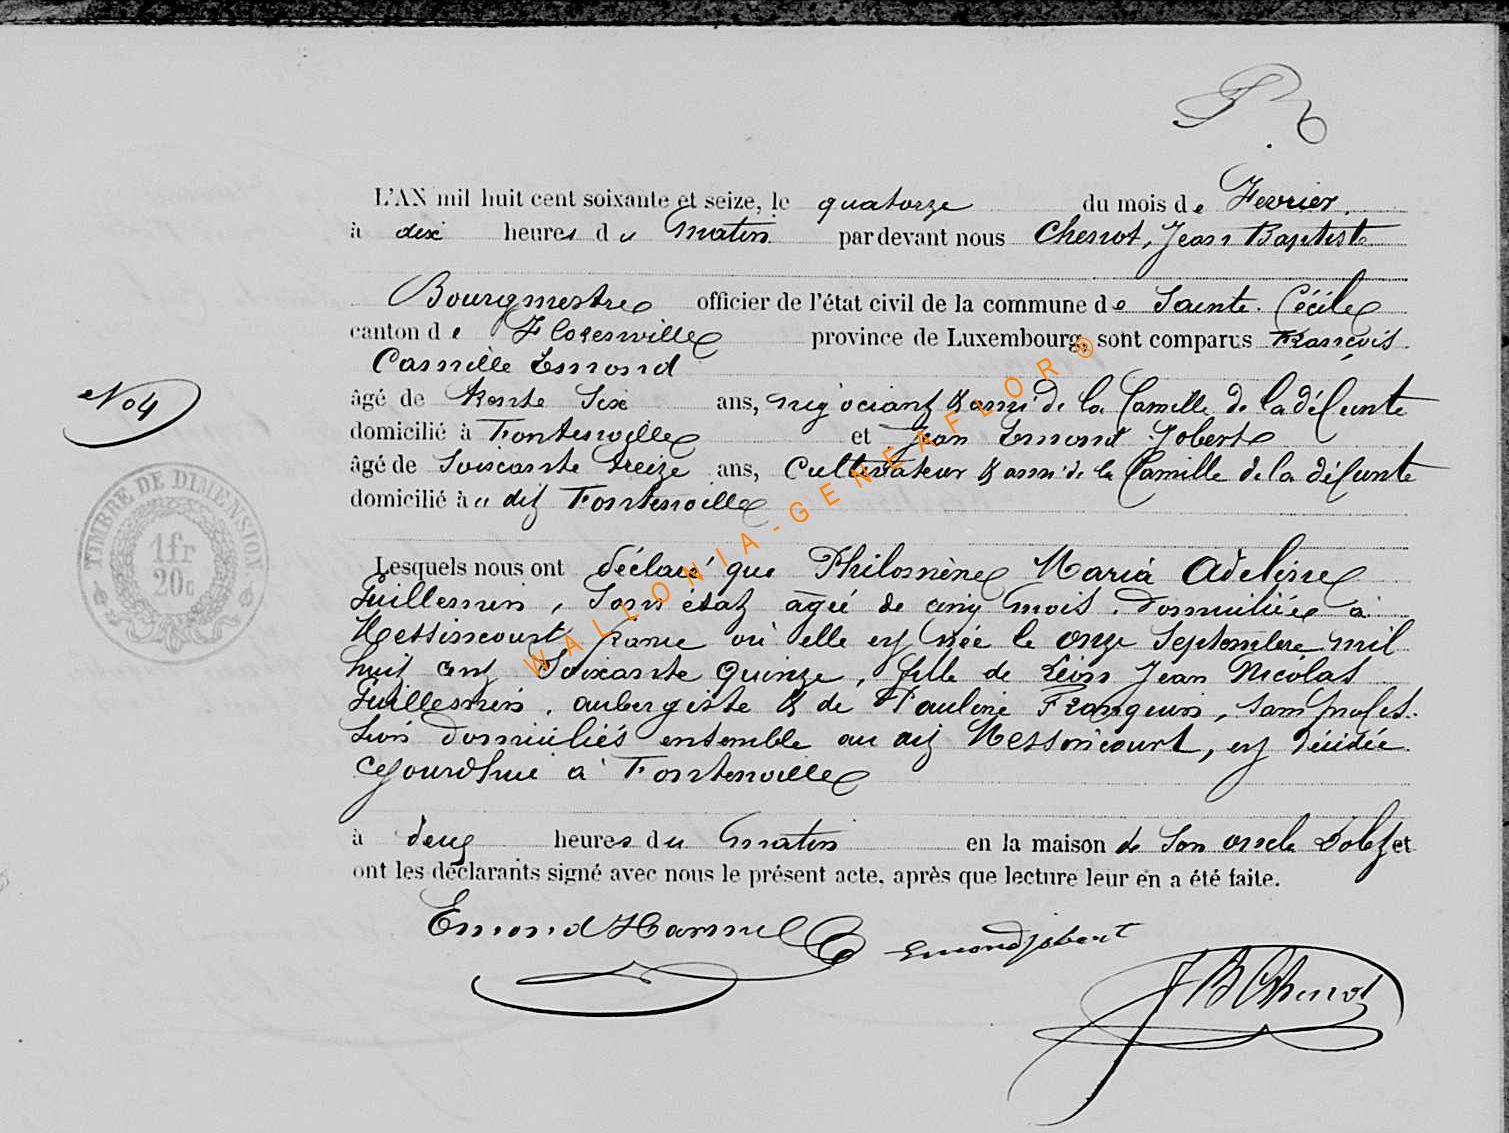 L'AN mil huit cent soixante et seize, le quatorze du mois de Fevrier.
à dix heures du matin par devant nous Chenot, Jean Baptiste
Bourgmestre officier de l'état civil de la commune de Sainte-Cécile
canton de Florenville province de Luxembourg, sont comparus François
Camille Emond
No 4
âgé de trente six ans, négociant & ami de la famille de la défunte
domicilié à Fontenoille et Jean Emond Jobert
âgé de Soixante treize ans, Cultivateur & ami de la famille de la défunte
domicilié à u dit Fontenoille
TIMBRE DE DIMENSION
1fr
20c
Lesquels nous ont déclaré que Philomène Maria Adeline
Guillemin, Sans état agée de cinq mois, domiciliée à
Messincourt france où elle est née le onze Septembre mil
huit cent Soixante Quinze, fille de Léon Jean Nicolas
Guillemin, aubergiste & de Pauline Frangeuin, sans profes-
sion domiciliés ensemble au dit Messincourt, est décédée
cejourd'hui à Fontenoille
à deux heures du matin en la maison de son oncle et
ont les déclarants signé avec nous le présent acte, après que lecture leur en a été faite.
Emond Hannel Emond jobert
JB Chenot
WALLONIA-GENEAFLOR®